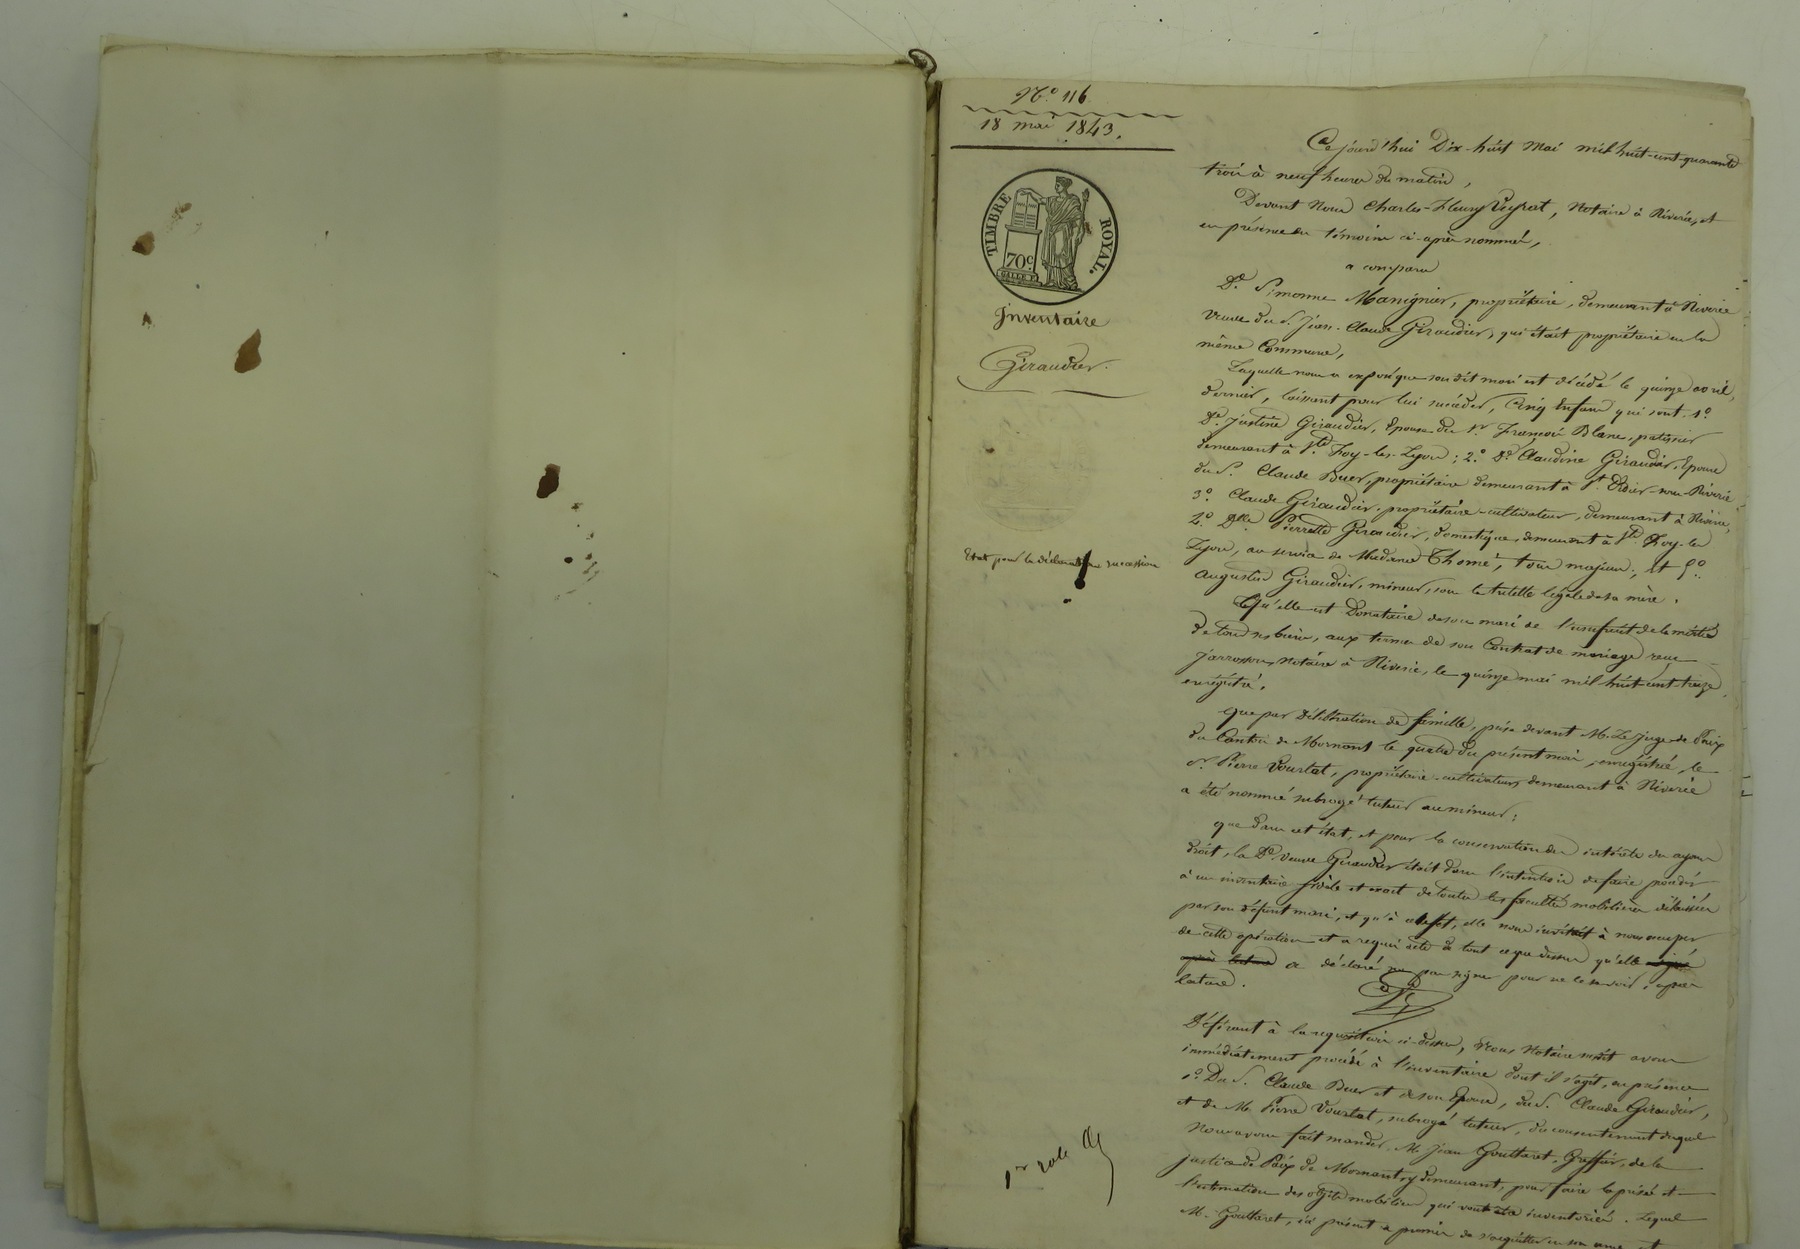 N.º 116
18 mai 1843.
TIMBRE ROYAL.
70c
Inventaire
Giraudier.
Etat pour la déclaration succession
1er role
Ce jourd'hui Dix-huit Mai mil huit-cent-quarante
trois à neuf heures du matin,
Devant Nous Charles-Fleury Veyrat, Notaire à Riverie, et
en présence des témoins ci-après nommés,
a comparu
De. Simonne Manignier, propriétaire, demeurant à Riverie
veuve du S. Jean-Claude Giraudier, qui était propriétaire en la
même Commune,
Laquelle nous a exposé que son dit mari est décédé le quinze avril
dernier, laissant pour lui succéder, Cinq Enfans qui sont 1º.
De. Justine Giraudier, Epouse du Sr. François Blanc, patissier
demeurant à Ste. Foy-les-Lyon ; 2.º De. Claudine Giraudier, Epouse
du S. Claude Buer, propriétaire demeurant à St. Didier-sous-Riverie
3º. Claude Giraudier, propriétaire-cultivateur, demeurant à Riverie,
4.º Dlle. Pierrette Giraudier, domestique, demeurant à Ste. Foy-les
Lyon, au service de Madame Thomé, tous majeurs ; et 5º.
Augustin Giraudier, mineur, sous la tutelle légale de sa mère.
Qu'elle est Donataire de son mari de l'usufruit de la moitié
de tous ses biens, aux termes de son Contrat de mariage reçu
Jarrosson, notaire à Riverie, le quinze mai mil huit-cent treize,
enregistré.
que par délibération de famille, prise devant M. Le Juge de Paix
du Canton de Mornant le quatre du présent mois, enregistrée, le
Sr. Pierre Vourlat, propriétaire-cultivateur, demeurant à Riverie
a été nommé subrogé tuteur au mineur ;
que dans cet état, et pour la conservation des intérêts des ayans
droit, la De. veuve Giraudier était dans l'intention de faire procéder
à un inventaire fidèle et exact de toutes les facultés mobilières délaissées
par son défunt mari, et qu'à cet effet, elle nous invitait à nous occuper
de cette opération et a requis acte de tout ce que dessus qu'elle signé
après lecture a déclaré ne pas signer pour ne le savoir, après
lecture.
Déférant à la réquisition ci-dessus, Nous Notaire susdit avons
immédiatement procédé à l'inventaire dont il s'agit, en présence
1º. Du S. Claude Buer et de son Epouse, du S. Claude Giraudier,
et de M. Pierre Vourlat, subrogé tuteur, du consentement duquel
Nous avons fait mander, M. Jean Gouttaret, Greffier, de la
justice de Paix de Mornant, y demeurant, pour faire la prisée et
l'estimation des objets mobiliers qui vont être inventoriés. Lequel
M. Gouttaret, ici présent a promis de s'acquitter en son ame et